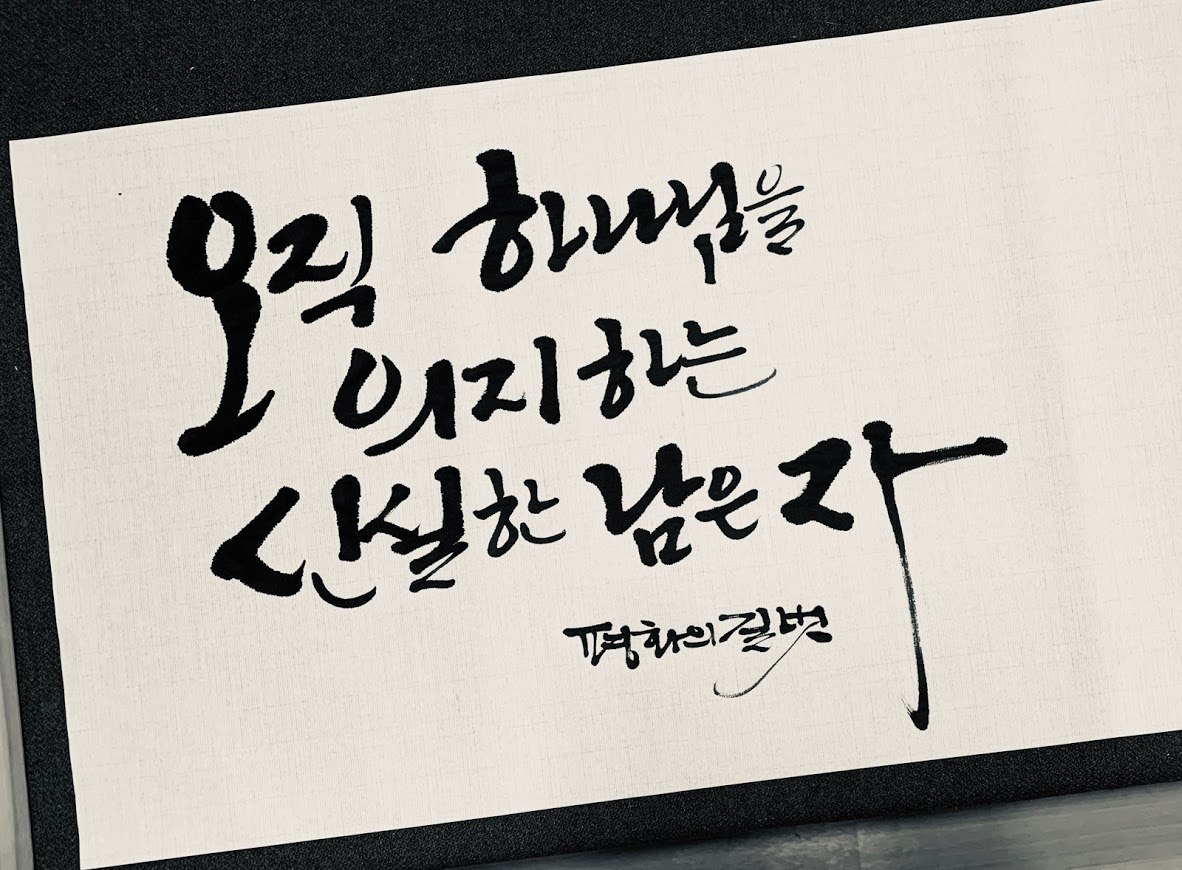 오직 하나님을
의지하는
신실한 남은 자
평화의 길벗